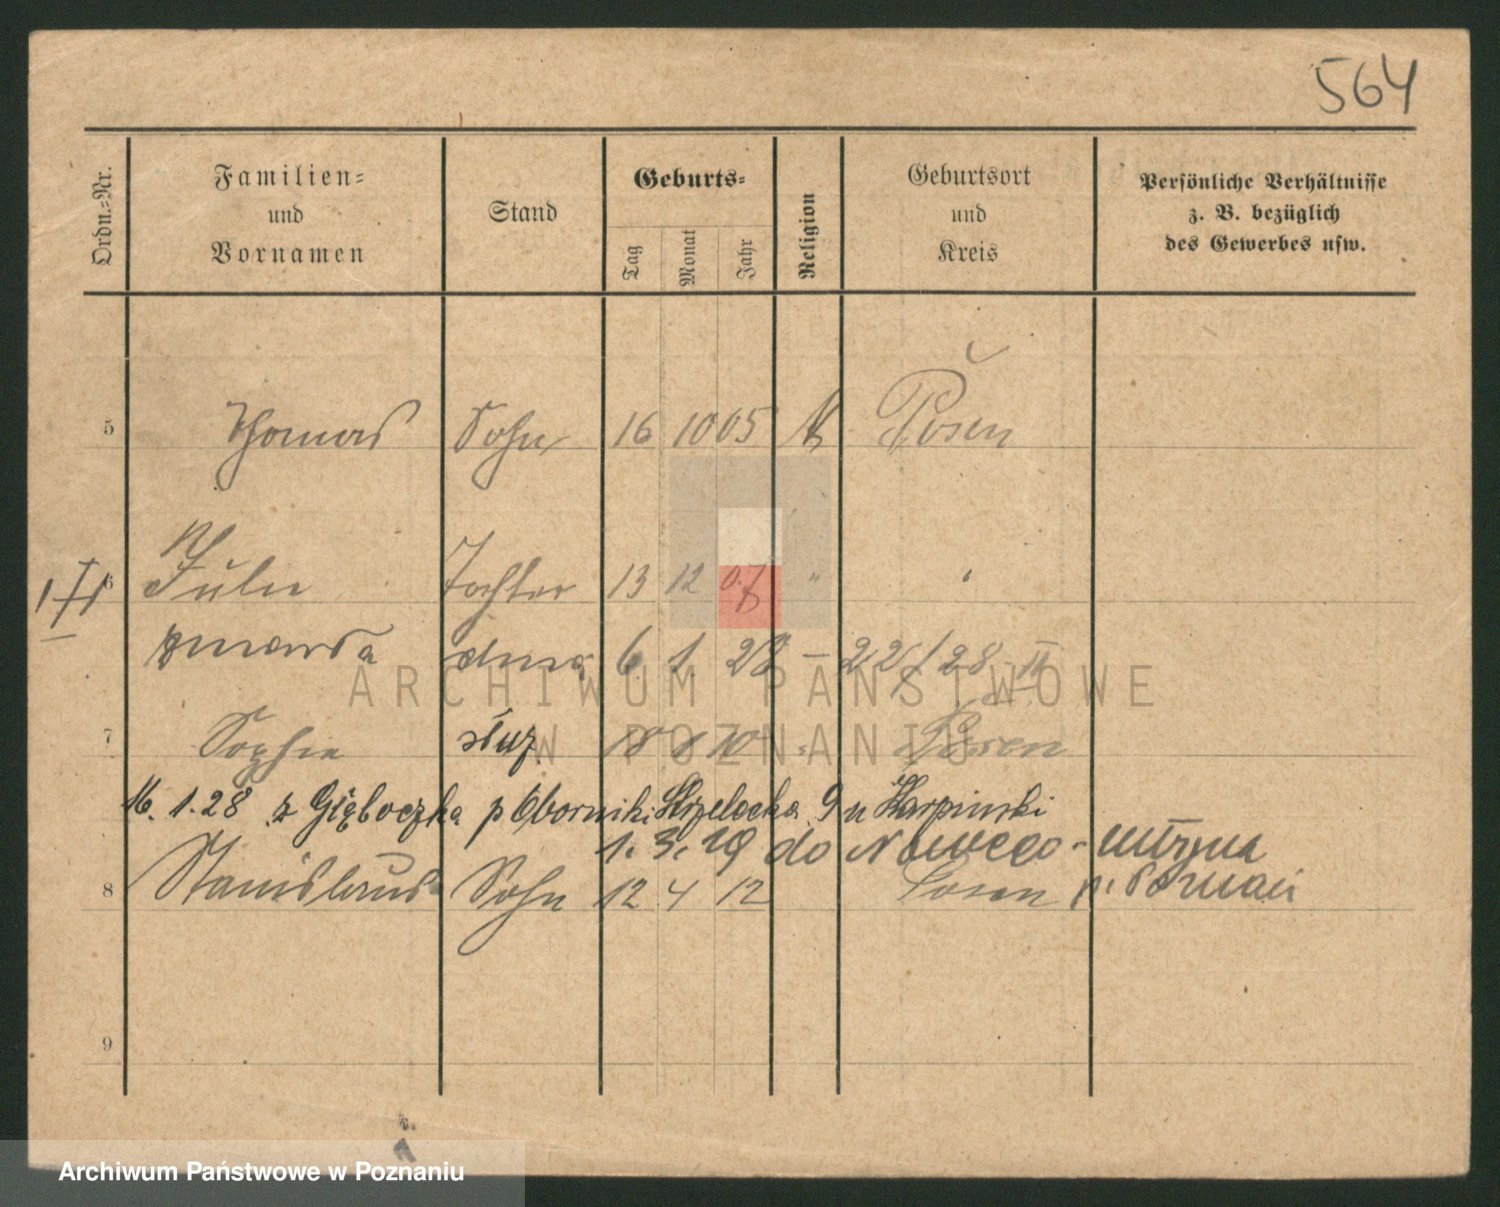 564
Ordn.-Nr. Familien- und Vornamen Stand Geburts- Tag Monat Jahr Religion Geburtsort und Kreis Persönliche Verhältnisse z. B. bezüglich des Gewerbes usw.
5 Thomas Sohn 16 10 05 k Posen
6 Tochter 13 12 07 " "
6. 1. 28 – 22/28
7 Sophie służ. 18 8 10 " Posen
16. 1. 28 z Głęboczka p Oborniki Strzelecka 9 u Karpinski
1. 3. 29 do Nowego-
8 Stanislaus Sohn 12 4 12 Posen p. Poznań
9
ARCHIWUM PAŃSTWOWE
W POZNANIU
Archiwum Państwowe w Poznaniu